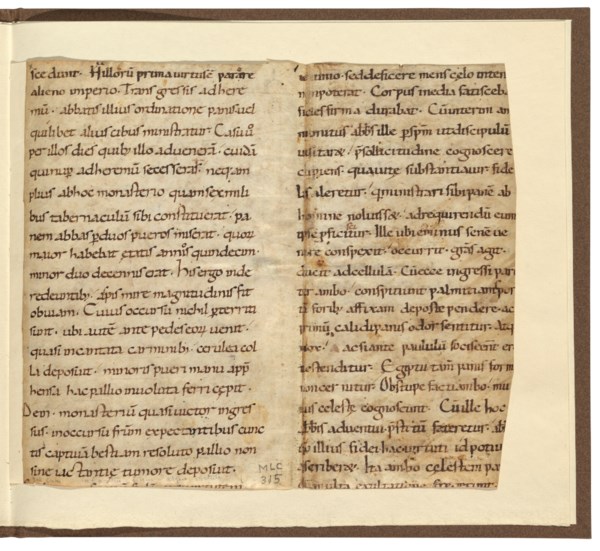 scedunt. Hillorū prima uirtus ē parere
alieno imperio. Transgressis adhere
mū. abbatis illius ordinatione panis uel
quilibet alius cibus ministratur. Casu
per illos dies quibus illo aduenerā. cuidā
qui nup adheremū secesserat. neq;
plius abhoc monasterio quam sex mili
bus tabernaculū sibi constituerat. pa
nem abbas p duos pueros miserat. quorū
maior habebat etatis annos quindecim.
minor duo decennis erat. his ergo inde
redeuntib; aspis mire magnitudinis fit
obuiam. Cuius occursu nichil pterriti
sunt. ubi autē ante pedes eorū uenit.
quasi incantata carminibus. cerulea col
la deposuit. minor is pueri manu appe
hensa hac pallio inuoluta ferri cepit.
Dein. monasteriū quasi uictor ingres
sus. inoccursū frm expectantibus cunc
tis captiuā bestiam resoluto pallio non
sine iactantie tumore deposuit.
MLC
315
animo sed deficere mens celo inten
n poterat. Corpus media fatisceb
fides firma durabat. Cū interim
monitus abbs ille p spm ut discipulū
uisitaret. p sollicitudine cognoscere
cupiens. qua uite substantia uir fide
lis aleretur. q ministrari sibi panē ab
homine noluisset. ad requirendū eum
ipse pficitur. Ille ubi eminus senē ue
nire conspexit. occurrit. gras agit.
ducit ad cellulā. Cū ecce ingressi pari
ter ambo. conspiciunt palmitiam spor
tā fortib; affixam de poste pendere. ac
primū calidi panis odor sentitur. at
uero ac si ante paululū
ostenditur. Egiptii tam panis forma
non cernitur. Obstupefacti ambo. mu
nus celeste cognoscunt. Cū ille hoc
abbis aduentui pstitū fateretur. ab
illius fidei hac uirtuti id potius
ascriberet. Ita ambo celestem pa